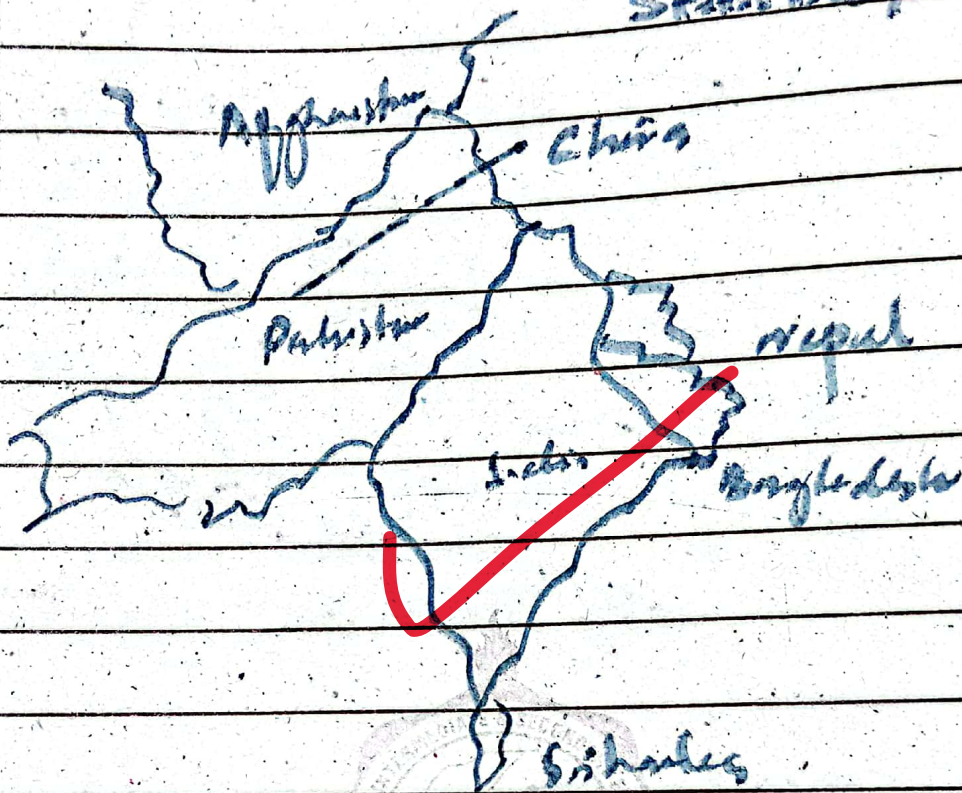 Afghanistan
China
Pakistan
Nepal
India
Bangladesh
Srilanka